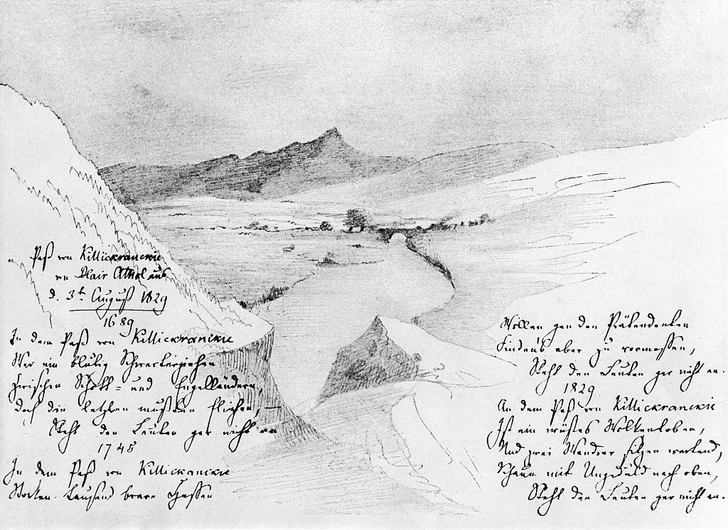 Paß von Killickrankie
von Blair Athol aus
d. 3t August 1829
1689
In dem Paß von Killickrankie
War ein blutig Schwerterziehen
Zwischen Schott und Engelländern,
Doch die letzten mußten fliehen, —
Steht den Leuten gar nicht an
1745
In dem Paß von Killickrankie
Stocken tausend brave Hessen
Wollen gen den Prätendenten
Finden's aber zu vermessen,
Steht den Leuten gar nicht an.
1829
An dem Paß von Killickrankie
Ist ein wüstes Wolkentoben,
Und zwei Wandrer sitzen wartend,
Schaun mit Ungeduld nach oben,
Steht den Leuten gar nicht an.